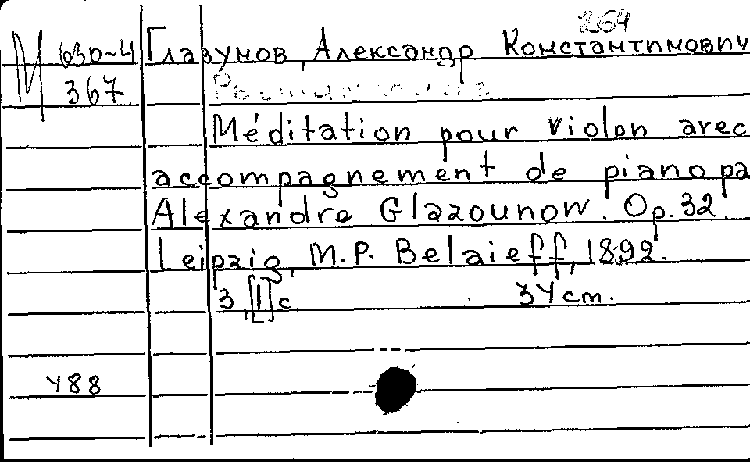 264
М 630-4 Глазунов, Александр Константинович
367
Méditation pour violon avec
accompagnement de piano pa
Alexandre Glazounow. Op. 32.
Leipzig, M.P. Belaieff, 1892.
3,[1] с 34 cm.
488